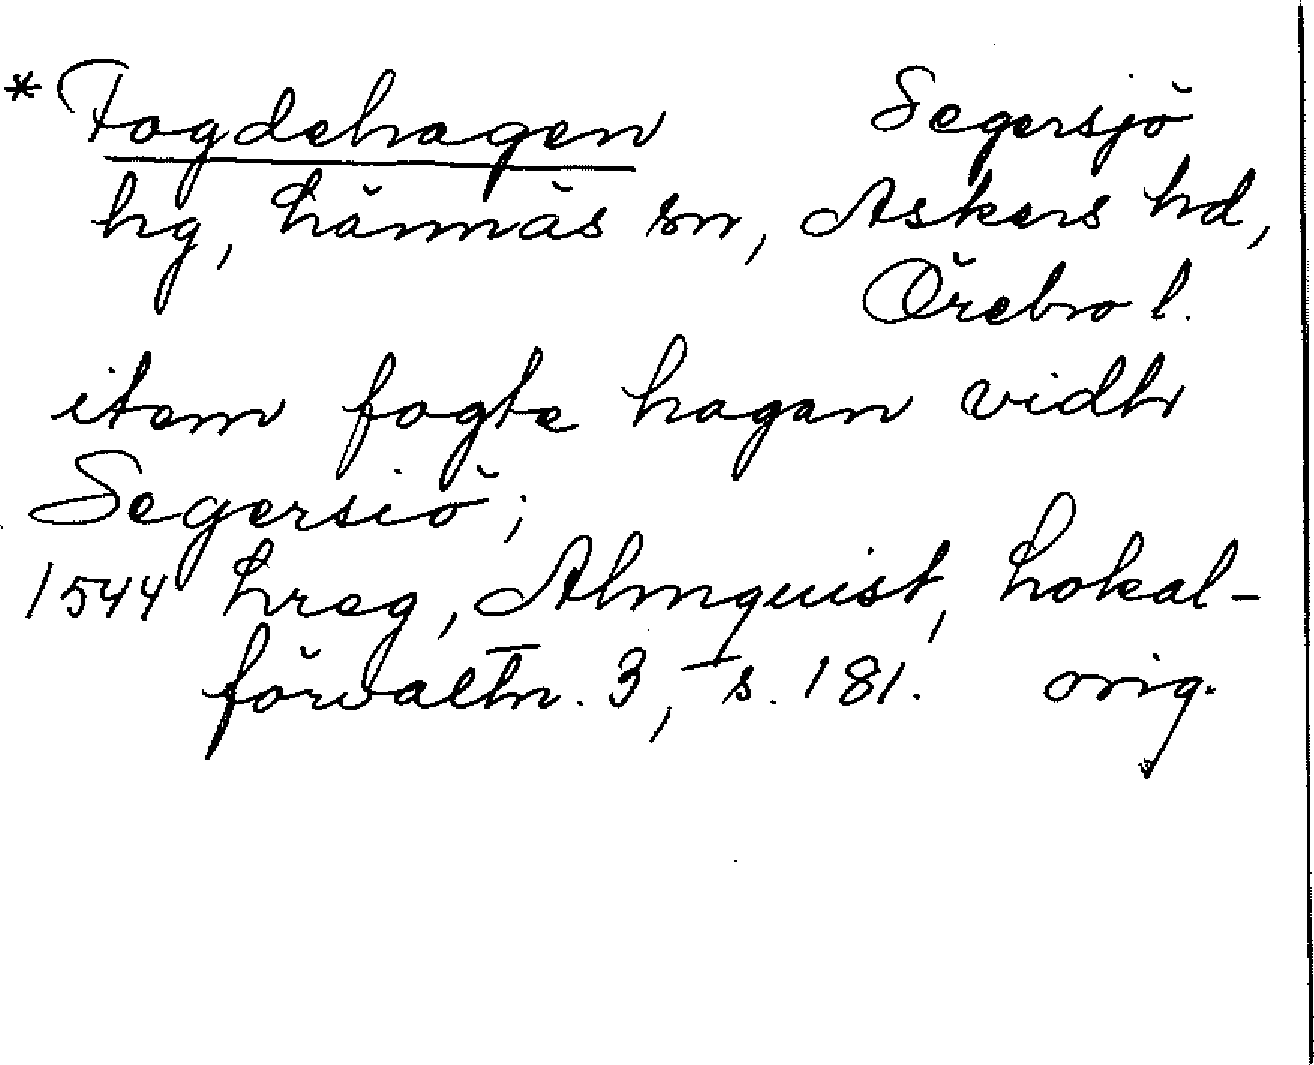 *Fogdehagen Segersjö
hg, Lännäs sn, Askers hd,
Örebro l.
item fogte hagan vidh
Segersiö;
1544 hreg, Almquist, Lokal-
förvaltn. 3, s. 181. orig.